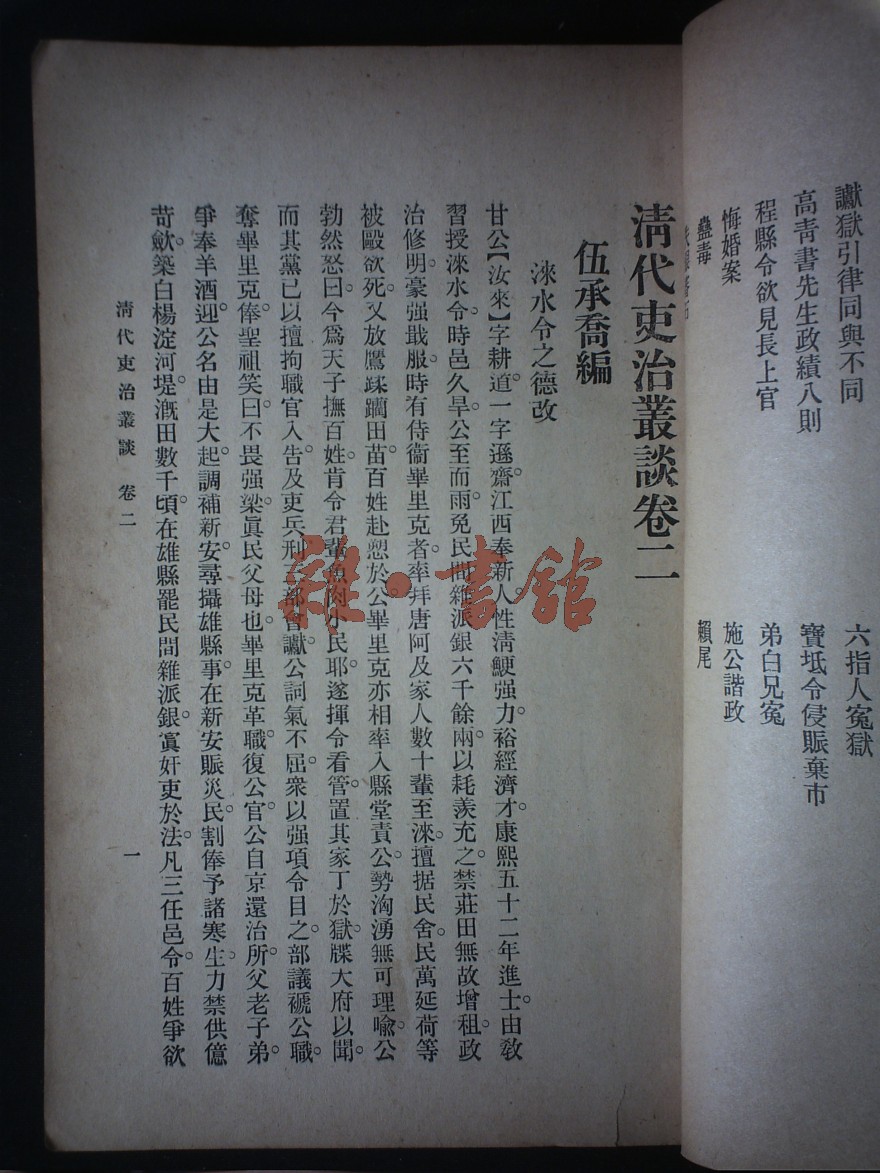 讞獄引律同與不同
六指人冤獄
高靑書先生政績八則
寶坻令侵賑棄市
程縣令欲見長上官
弟白兄冤
悔婚案
施公諧政
蠱毒
賴尾
淸代吏治叢談卷二
伍承喬編
淶水令之德改
甘公【汝來】字耕道。一字遜齋。江西奉新人。性淸鯁强力。裕經濟才。康熙五十二年進士。由敎
習授淶水令。時邑久旱。公至而雨。免民間雜派銀六千餘兩。以耗羨充之。禁莊田無故增租。政
治修明。豪强戢服。時有侍衞畢里克者。率拜唐阿及家人數十輩至淶。擅据民舍。民萬延荷等
被毆欲死。又放鷹蹂躪田苗。百姓赴愬於公。畢里克亦相率入縣堂責公。勢洶湧無可理喩。公
勃然怒曰。今爲天子撫百姓。肯令君輩魚肉小民耶。遂揮令看管。置其家丁於獄。牒大府以聞。
而其黨已以擅拘職官入告。及吏兵刑三部會讞。公詞氣不屈。衆以强項令目之。部議褫公職。
奪畢里克俸。聖祖笑曰。不畏强梁。眞民父母也。畢里克革職。復公官。公自京還治所。父老子弟
爭奉羊酒迎。公名由是大起。調補新安。尋攝雄縣事。在新安賑災民。割俸予諸寒生。力禁供億
苛歛。築白楊淀河堤。漑田數千頃。在雄縣罷民間雜派銀。寘奸吏於法。凡三任邑令。百姓爭欲
淸代吏治叢談 卷二
一
雜·書館